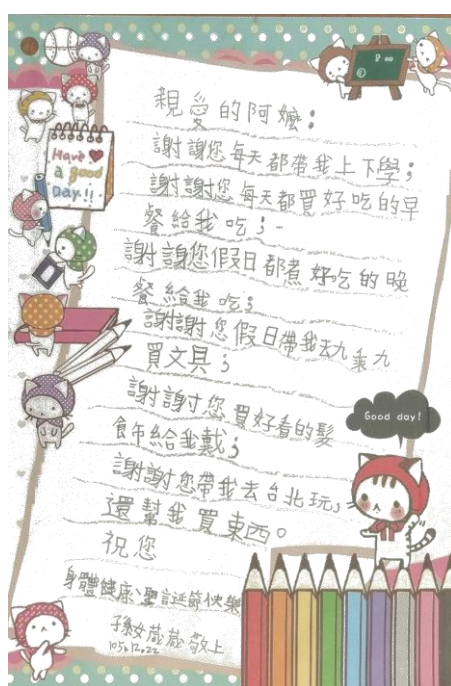 Have
a good
Day!!
親愛的阿嬤:
謝謝您每天都帶我上下學;
謝謝您每天都買好吃的早
餐給我吃;
謝謝您假日都煮好吃的晚
餐給我吃;
謝謝您假日帶我去九乘九
買文具;
謝謝您買好看的髮
飾給我戴;
謝謝您帶我去台北玩,
還幫我買東西。
祝您
身體健康、聖誕節快樂
孫女 敬上
105.12.22
Good day!